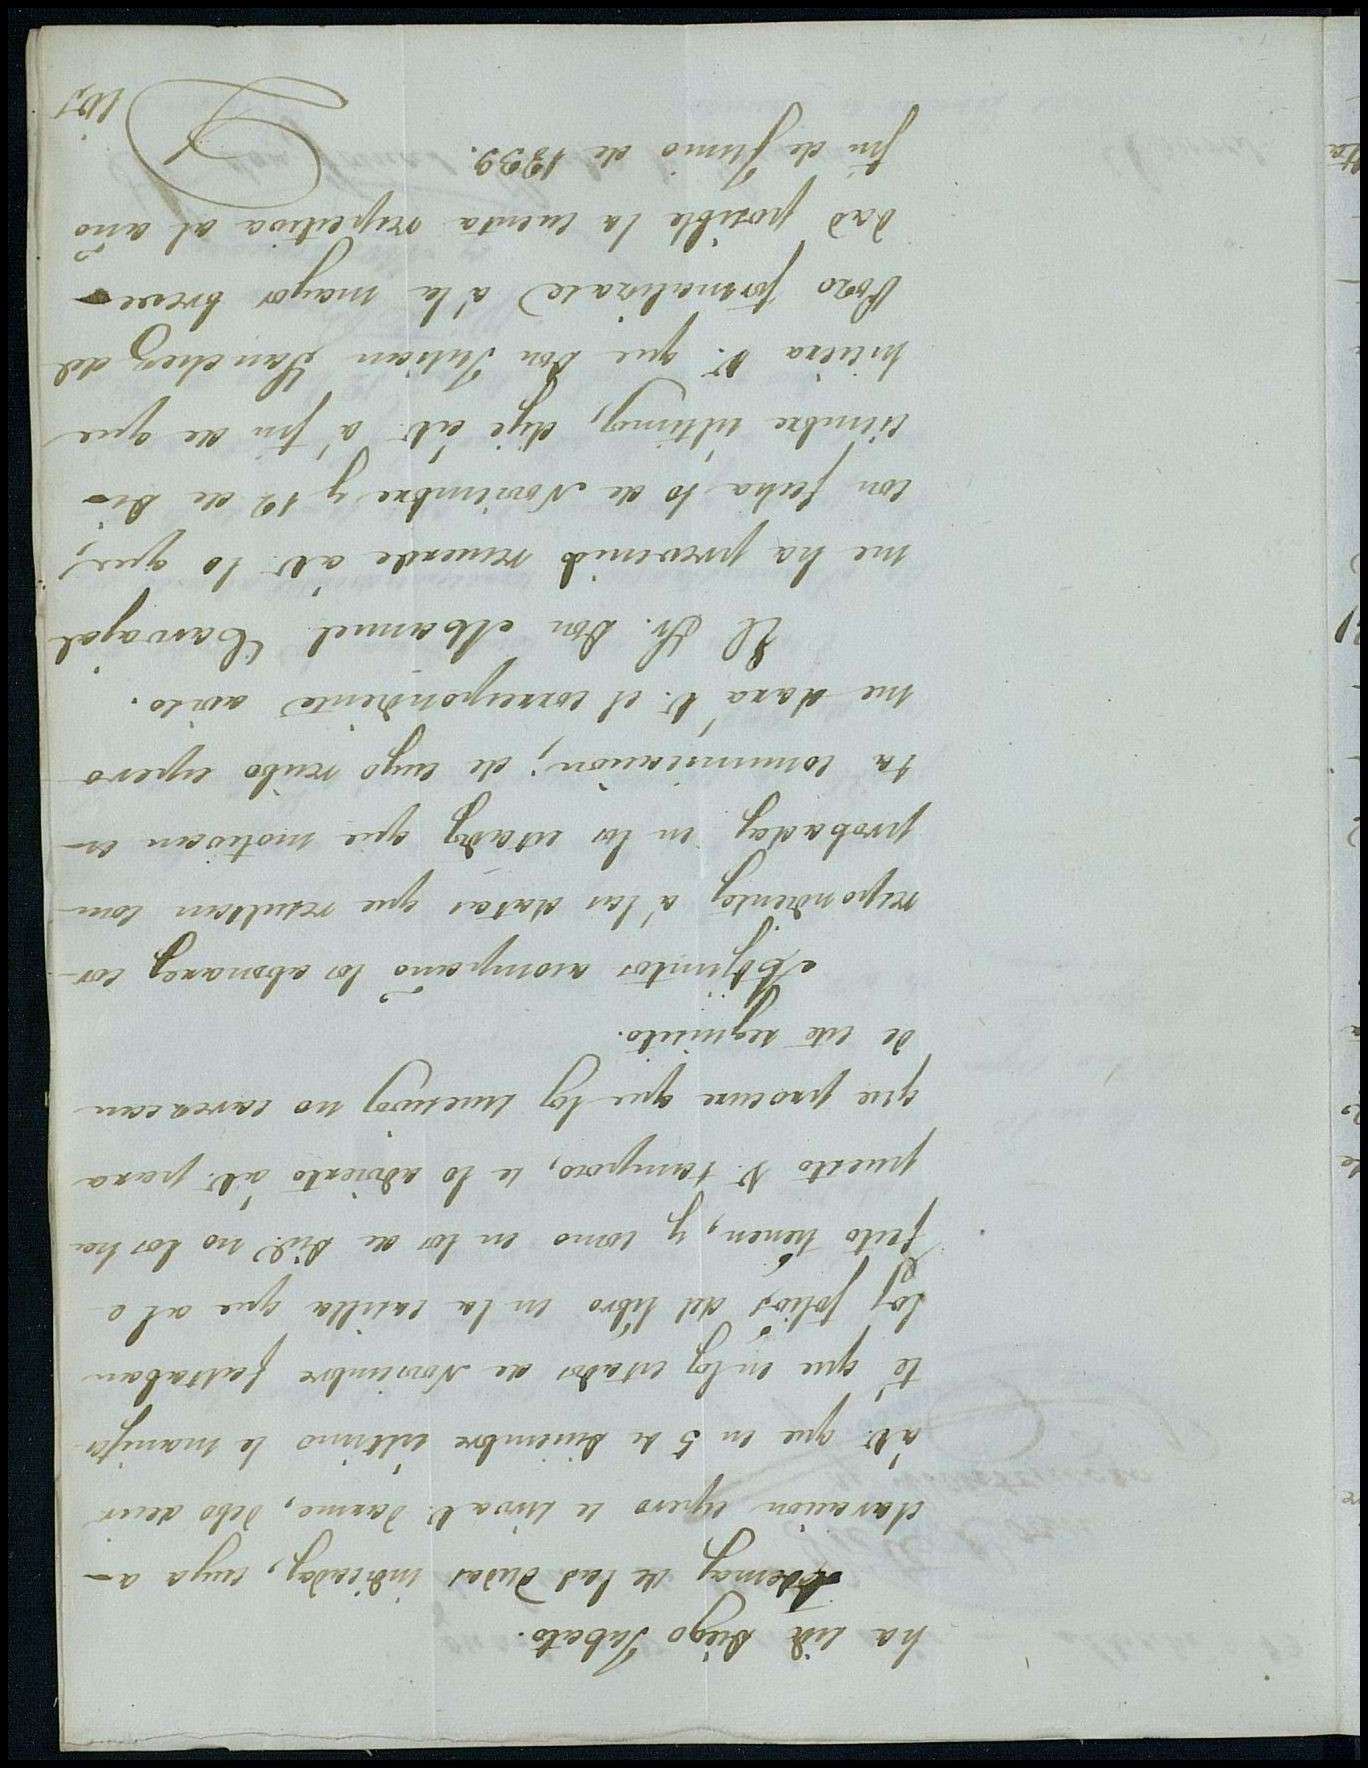 ha sido Diego Jubato.
Ademas de las dudas indicadas, cuya a-
claracion espero se sirva V. darme, debo decir
á V. que en 5 de Diciembre ultimo le manifes
té que en los estados de Noviembre faltaban
los folios del libro en la casilla que al e
fecto tienen, y como en los de Dic.e no los ha
puesto V. tampoco, se lo advierto á V. para
que procure que los nuevos no carezcan
de este requisito.
Adjuntos acompaño los abonares cor-
respondientes á las datas que resultan com-
probadas en los estados que motivan es-
ta comunicacion; de cuyo recibo espero
me dará V. el correspondiente aviso.
El Sr. Don Manuel Carvajal
me ha prevenido recuerde á V. lo que,
con fecha 10 de Noviembre y 12 de Di-
ciembre ultimos, dije á V. á fin de que
hiciera V. que Don Julian Sanchez del
Pozo formalizase á la mayor breve-
dad posible la cuenta respectiva al año
fin de Junio de 1839.